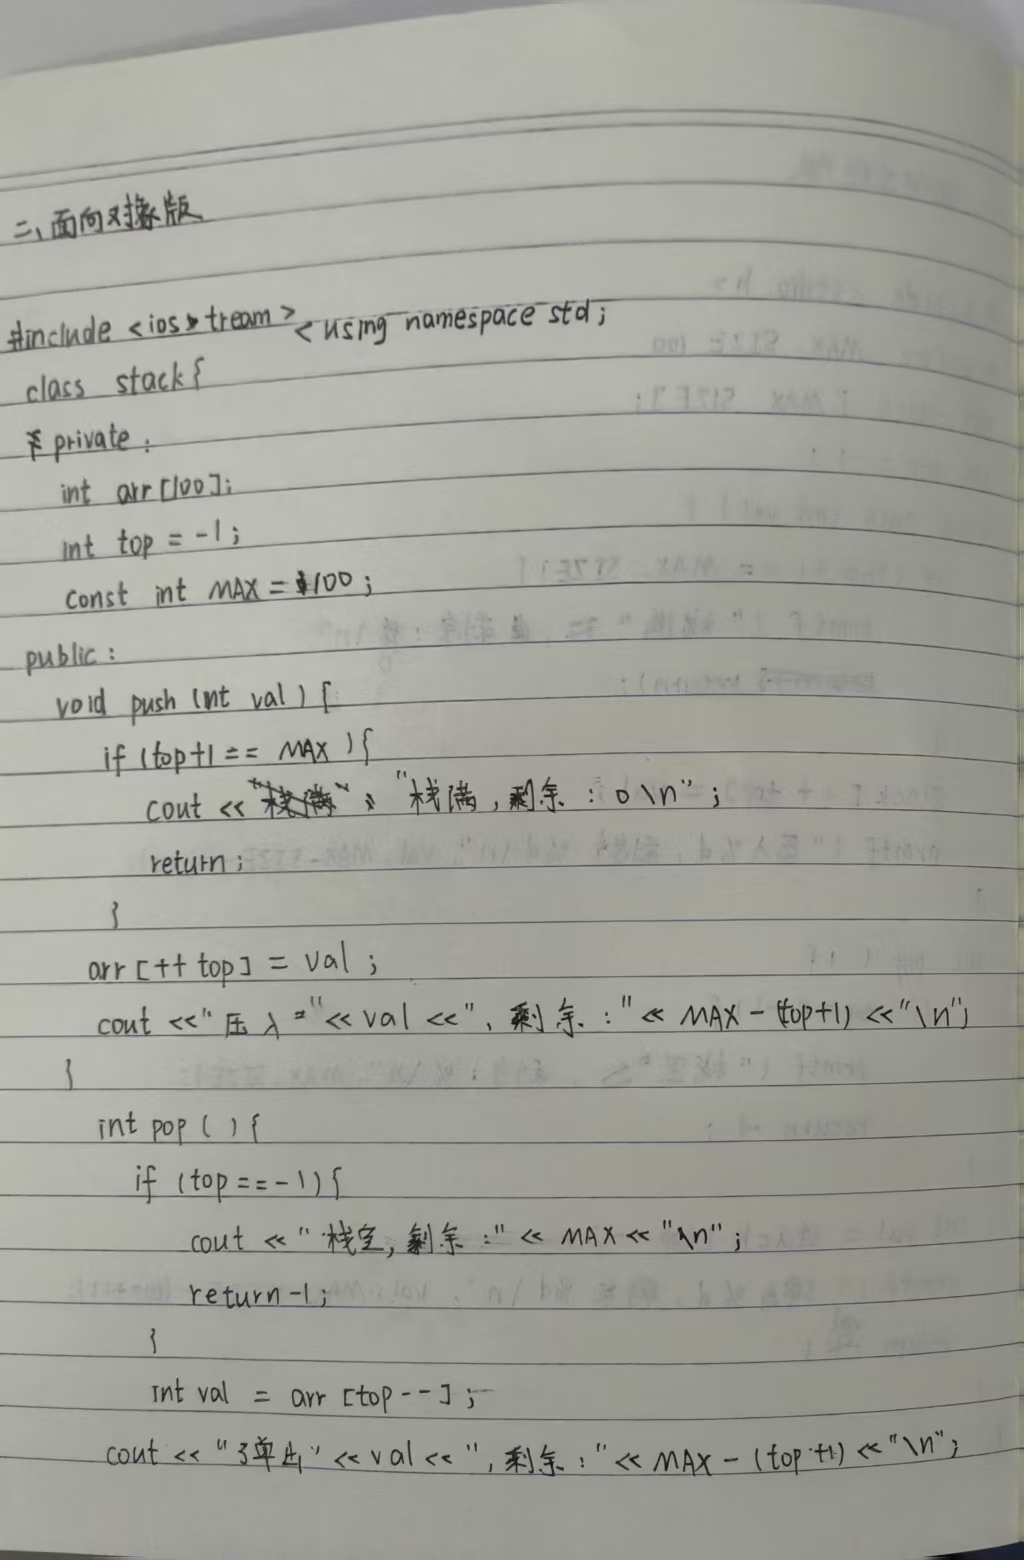 二、面向对象版
#include <iostream> < using namespace std;
class stack{
private:
int arr[100];
int top = -1;
const int MAX = 100;
public:
void push (int val) {
if (top+1 == MAX ){
cout << "栈满, 剩余 : 0 \n" ;
return ;
}
arr [++ top] = val ;
cout <<" 压入 "<< val <<", 剩余 : "<< MAX - (top+1) <<"\n";
}
int pop ( ) {
if (top == -1) {
cout << " 栈空, 剩余 :" << MAX << "\n" ;
return -1;
}
int val = arr [top --] ;
cout << "弹出" << val << ", 剩余 : "<< MAX - (top +1) << "\n" ;